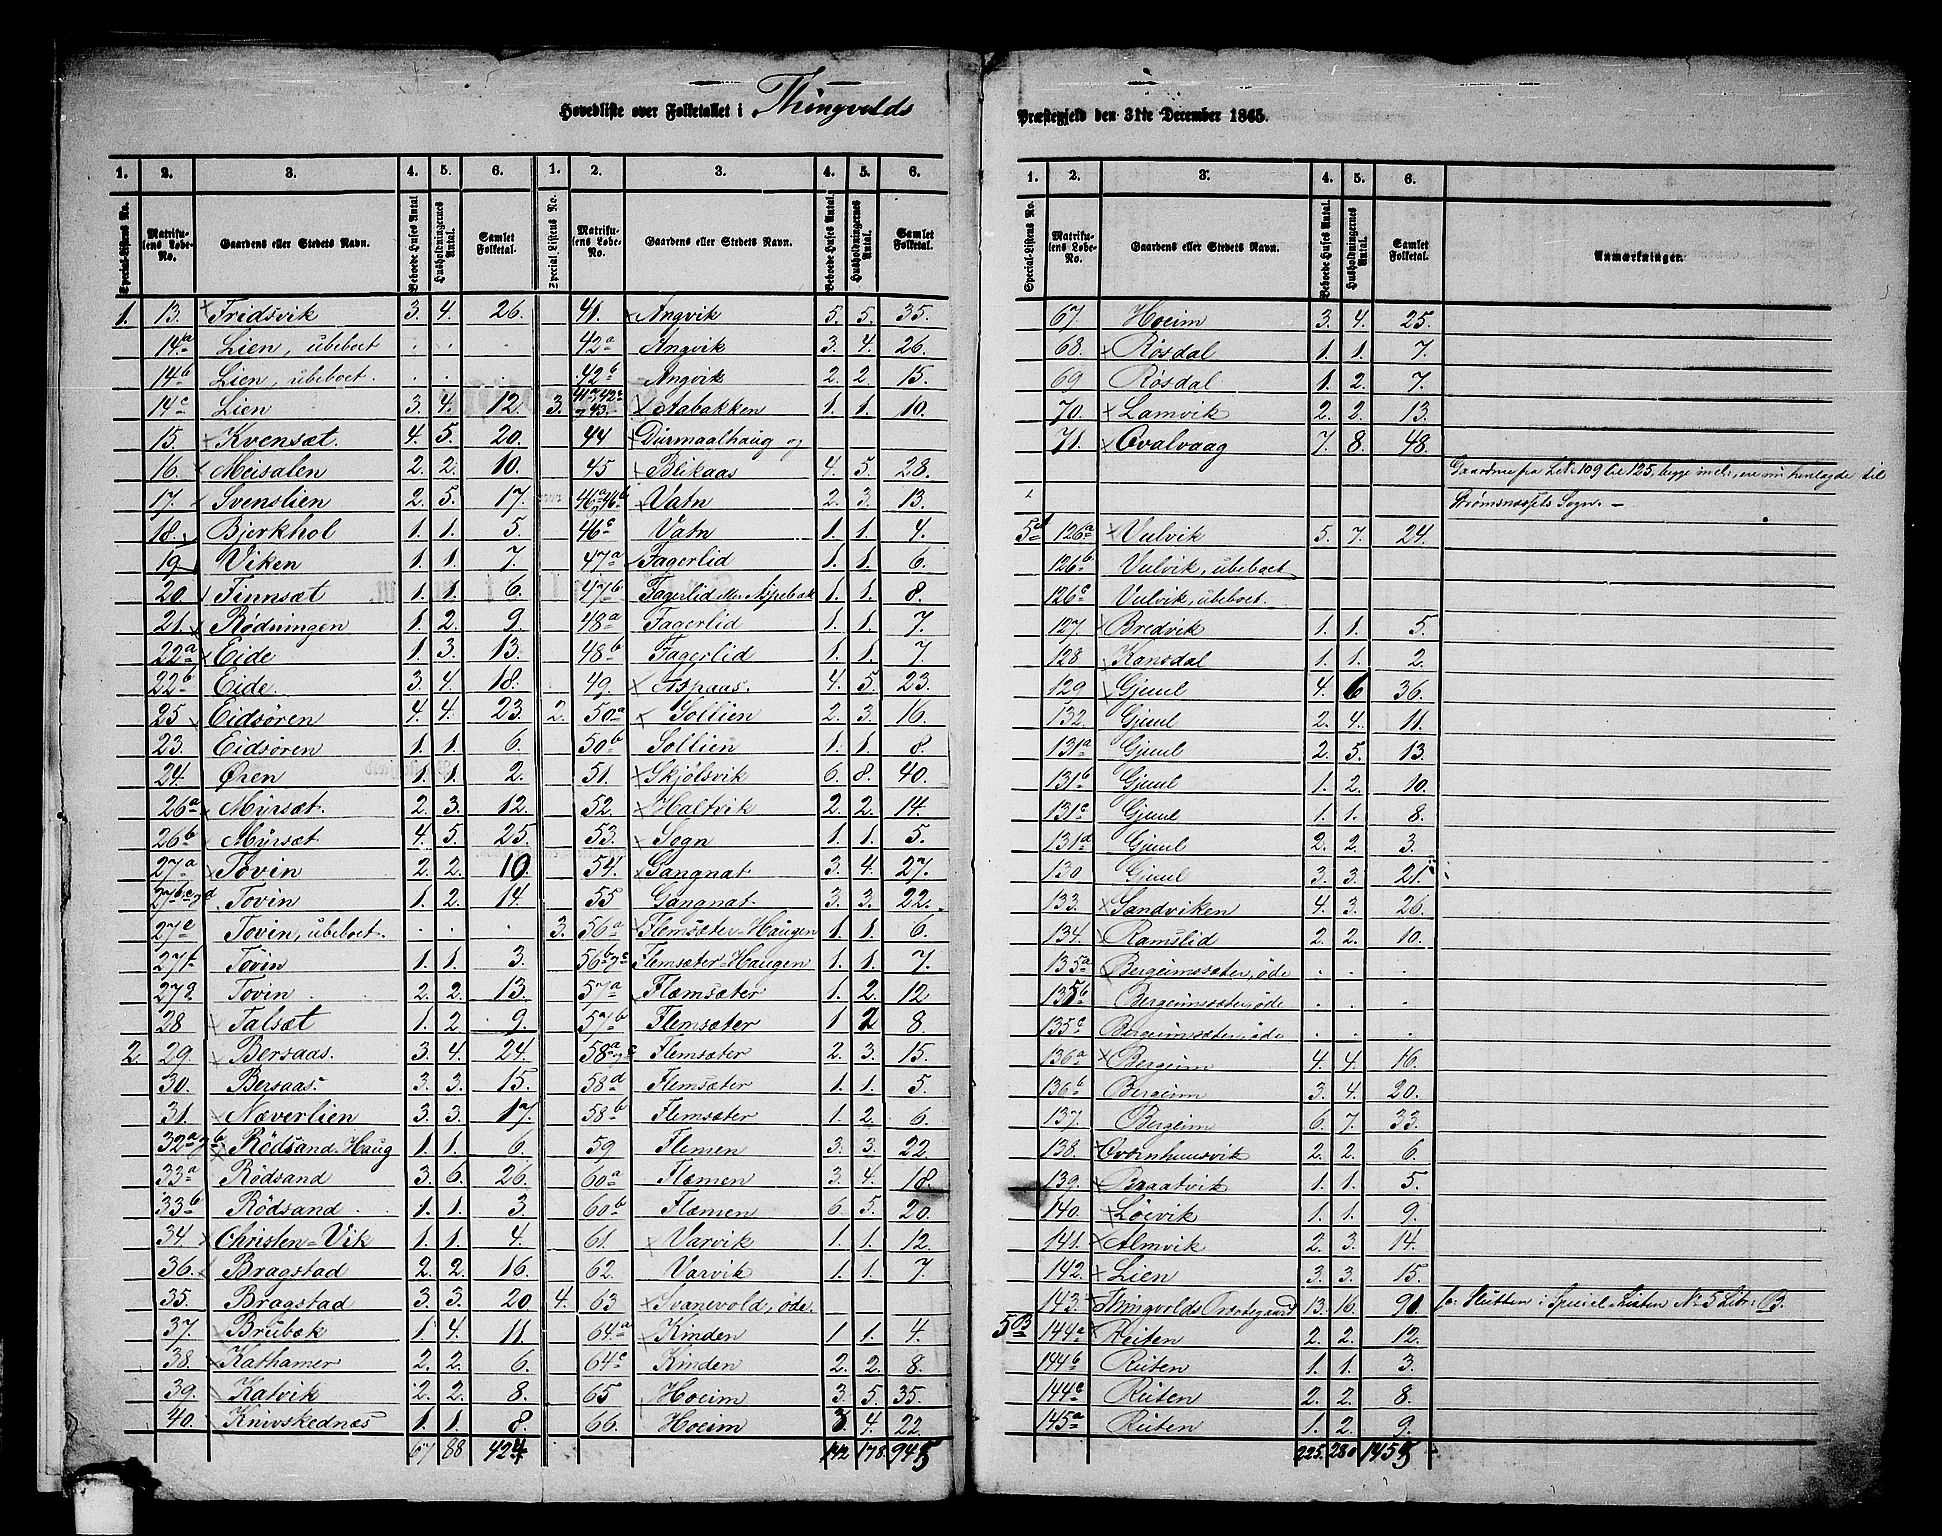 Hovedliste over Folketallet i Thingvolds
1. 2. 3. 4. 5. 6. 1. 2. 3. 4. 5. 6.
Special-Listens No. Matrikulens Løbe-No. Gaardens eller Stedets Navn. Beboede Huses Antal Husholdningernes Antal. Samlet Folketal. Special Listens No. Matrikulens Løbe-No. Gaardens eller Stedets Navn. Beboede Huses Antal. Husholdningernes Antal. Samlet Folketal.
1. 13. Fridsvik 3. 4. 26. 41. Angvik 5. 5. 35.
14a Lien, ubeboet . . . 42a Angvik 3. 4. 26.
14b Lien, ubeboet . . . 42b Angvik 2. 2. 15.
14c Lien 3. 4. 12. 3. 41a, 42c og 43. Aabakken 1. 1. 10.
15. Kvensæt. 4. 5. 20. 44 Durmaalhaug og
16. Meisalen 2. 2. 10. 45 Blikaas 4. 5. 28.
17. Svenslien 2. 5. 17. 46a og 46b Vatn 2. 3. 13.
18. Bjerkhol 1. 1. 5. 46c Vatn 1. 1. 4.
19 Viken 1. 1. 7. 47a Fagerlid 1. 1. 6.
20. Finnsæt 1. 1. 6. 47b Fagerlid eller Aspebak 1. 1. 8.
21. Rødningen 1. 2. 9. 48a Fagerlid 1. 1. 7.
22a Eide 1. 3. 13. 48b Fagerlid 1. 1. 7
22b Eide. 3. 4. 18. 49. Aspaas. 4. 5. 23.
25 Eidsøren 4. 4. 23. 2. 50a Sollien 2. 3. 16.
23. Eidsøren 1. 1. 6. 50b Sollien 1. 1. 8.
24. Øren 1. 1. 2. 51. Skjølsvik 6. 8. 40.
26a Myrsæt. 2. 3. 12. 52. Haltvik 2. 2. 14.
26b Myrsæt 4. 5. 25. 53. Sogn 1. 1. 5.
27a Tovin 2. 2. 10. 54. Gangnat 3. 4. 27.
27b, c og d Tovin 1. 2. 14. 55 Gangnat. 3. 3. 22.
27e Tovin, ubeboet . . . 3. 56a Flemsæter-Haugen 1. 1. 6.
27f Tovin 1. 1. 3. 56b og c Flemsæter-Haugen 1. 1. 7.
27g Tovin. 2. 2. 13. 57a Flæmsæter 1. 2. 12
28 Talsæt 1. 2 9. 57b Flemsæter 1. 2 8.
2. 29. Bersaas. 3. 4. 24. 58a og c Flemsæter 2. 3. 15.
30. Bersaas. 3. 3. 15. 58d Flemsæter 1. 1. 5.
31. Næverlien 3. 3. 17. 58b Flemsæter 1. 2. 6.
32a og b Rødsand-Haug 1. 1. 6. 59 Flemen 3. 3. 22.
33a Rødsand 3. 6. 26. 60a Flæmen 3. 4. 18.
33b Rødsand. 1. 1. 3. 60b Flæmen 6. 5. 20.
34. Christen=Vik 1. 1. 4. 61. Varvik 1. 1. 12.
36. Bragstad 2. 2. 16. 62. Varvik 1. 1. 7.
35. Bragstad 3. 3. 20 4. 63 Svanevold, øde.
37. Brubæk 1. 4. 11. 64a Kinden 1. 1. 4.
38. Kathamer 2. 2. 6. 64c Kinden 2. 2. 8.
39. Katvik 2. 2. 8. 65 Hoeim 3. 5. 35.
40. Knivskednæs 1. 1. 8. 66. Hoeim 3. 4. 22.
67 88 424 142 178 945
Præstegjeld den 31te December 1865.
1. 2. 3. 4. 5. 6.
Special-Listens No. Matrikulens Løbe-No. Gaardens eller Stedets Navn. Beboede Huses Antal. Husholdningernes Antal. Samlet Folketal. Anmærkninger.
67 Hoeim 3. 4. 25.
68. Røsdal 1. 1. 7.
69 Røsdal 1. 2. 7.
70. Lamvik 2. 2. 13.
71. Qvalvaag 7. 8. 48.
Gaardene fra Lit. 109 til 125, begge incl., ere nu henlagde til
Strømsnæssets Sogn. —
5A 126a Vulvik 5. 7. 24.
126b Vulvik, ubeboet
126c Vulvik, ubeboet.
127. Bredvik 1. 1. 5.
128. Kansdal 1. 1. 2.
129 Gjuul 4. 6 36.
132. Gjuul 2. 4. 11.
131a Gjuul 2. 5. 13.
131b Gjuul 1. 2. 10.
131c Gjuul 1. 1. 8.
131d Gjuul 2. 2. 3.
130 Gjuul 3. 3. 21.
133. Sandviken 4. 3. 26.
134. Ramslid 2. 2. 10.
135a Bergeimssæter, øde . . .
135b Bergeimsæter, øde . . .
135c Bergeimsæter, øde . . .
136a Bergeim 4. 4. 16.
136b Bergeim 3. 4. 20.
137. Bergeim 6. 7. 33.
138. Qvernhuusvik 2. 2. 6.
139. Braatvik 1. 1. 5.
140. Løevik 1. 1. 9.
141. Almvik 2. 3. 14.
142. Lien 3. 3. 15.
143. Thingvolds Præstegaard 13. 16. 91. fr. Slutten i Speciel Listen No 5 Litr. B.
5B 144a Reiten 2. 2. 12.
144b Reiten 1. 1. 3.
144c Reiten 2. 2. 8.
145a Reiten 1. 2. 9.
225. 280 1455